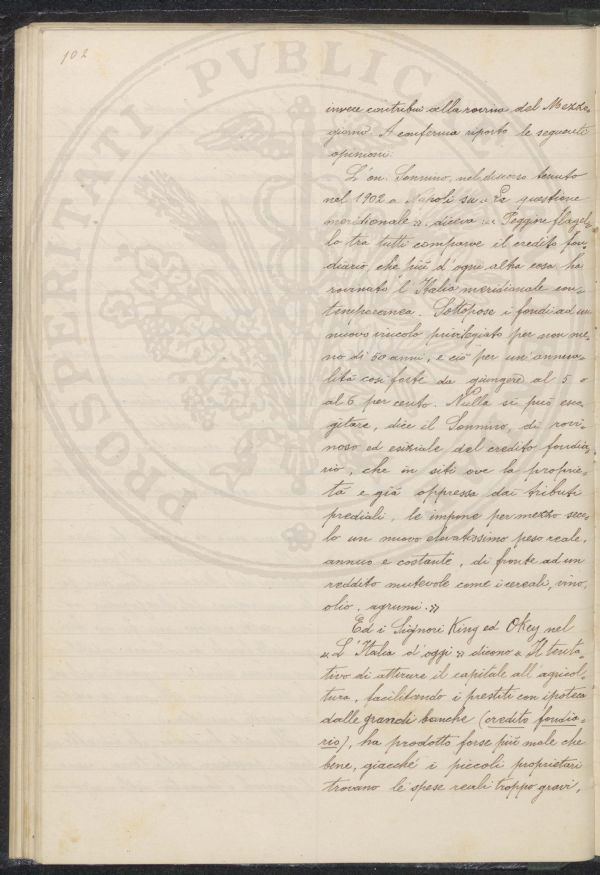 102
invece contribuì alla rovina del Mezzo-
giorno. A conferma riporto le seguenti
opinioni.
L'on. Sonnino, nel discorso tenuto
nel 1902 a Napoli su « La questione
meridionale », diceva: « Peggiore flagel-
lo tra tutti comparve il credito fon-
diario, che più d'ogni altra cosa ha
rovinato l'Italia meridionale con-
temporanea. Sottopose i fondi ad un
nuovo vincolo privilegiato per non me-
no di 50 anni, e ciò per un'annua-
lità così forte da giungere al 5 o
al 6 per cento. Nulla si può esco-
gitare, dice il Sonnino, di rovi-
noso ed esiziale del credito fondia-
rio, che in siti ove la proprie-
tà è già oppressa dai tributi
prediali, le impone per mezzo seco-
lo un nuovo elevatissimo peso reale,
annuo e costante, di fronte ad un
reddito mutevole come i cereali, vino,
olio, agrumi. »
Ed i Signori King ed Okey nel
« L'Italia d'oggi » dicono « Il tenta-
tivo di attirare il capitale all'agricol-
tura, facilitando i prestiti con ipoteca
dalle grandi banche (credito fondia-
rio), ha prodotto forse più male che
bene, giacché i piccoli proprietari
trovano le spese reali troppo gravi,
PROSPERITATI PVBLICAE